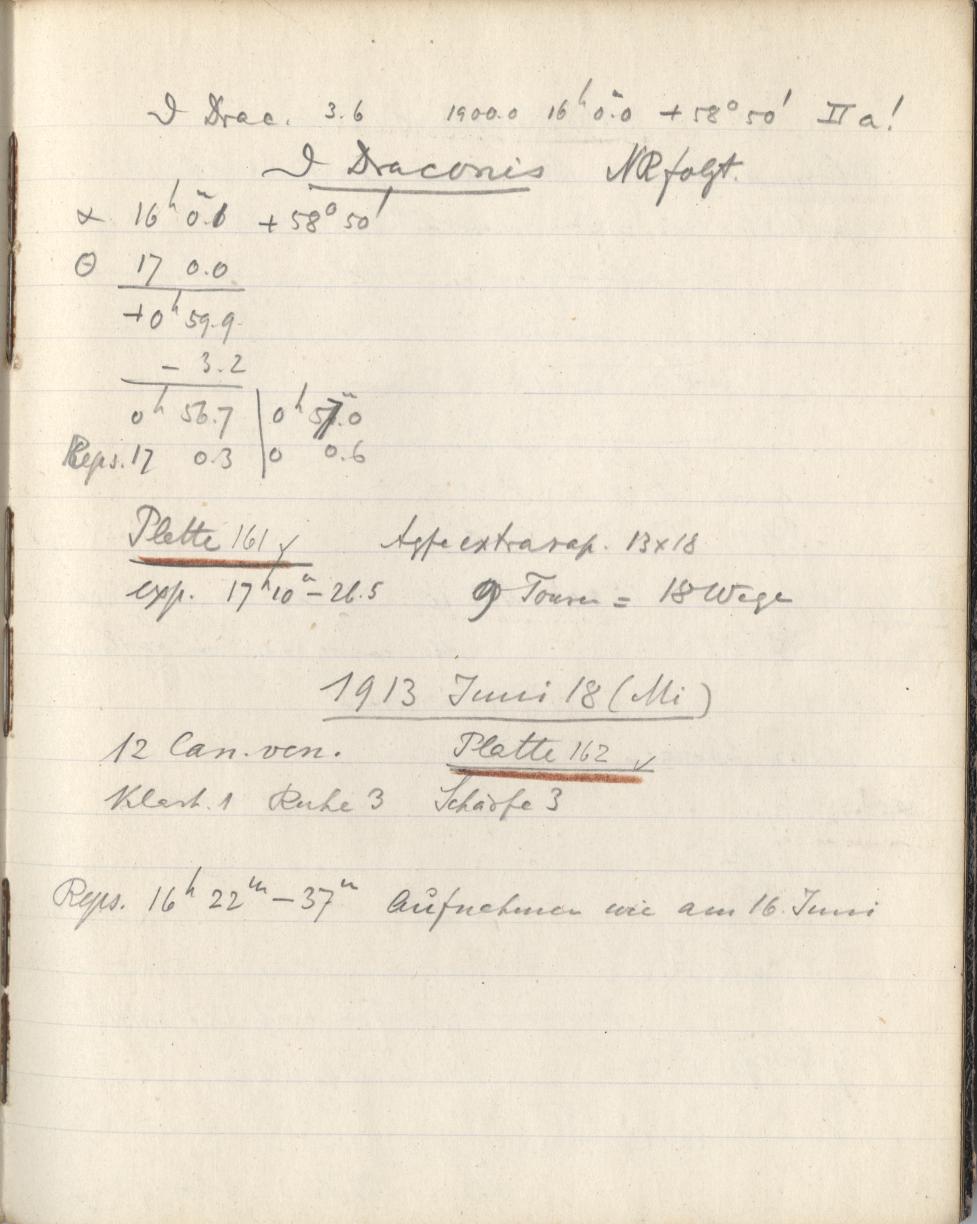 ϑ Drac. 3.6 1900.0 16ʰ 0ᵐ.0 +58° 50′ II a!
ϑ Draconis NR folgt.
α 16ʰ 0ᵐ.1 +58° 50′
Θ 17 0.0
+0ʰ 59.9
- 3.2
0ʰ 56.7 | 0ʰ 57ᵐ.0
Reps. 17 0.3 | 0 0.6
Platte 161 ✓ Agfa extrarap. 13x18
exp. 17ʰ 10ᵐ - 26.5 9 Touren = 18 Wege
1913 Juni 18 (Mi)
12 Can. ven. Platte 162 ✓
Klarh. 1 Ruhe 3 Schärfe 3
Reps. 16ʰ 22ᵐ - 37ᵐ Aufnahmen wie am 16. Juni